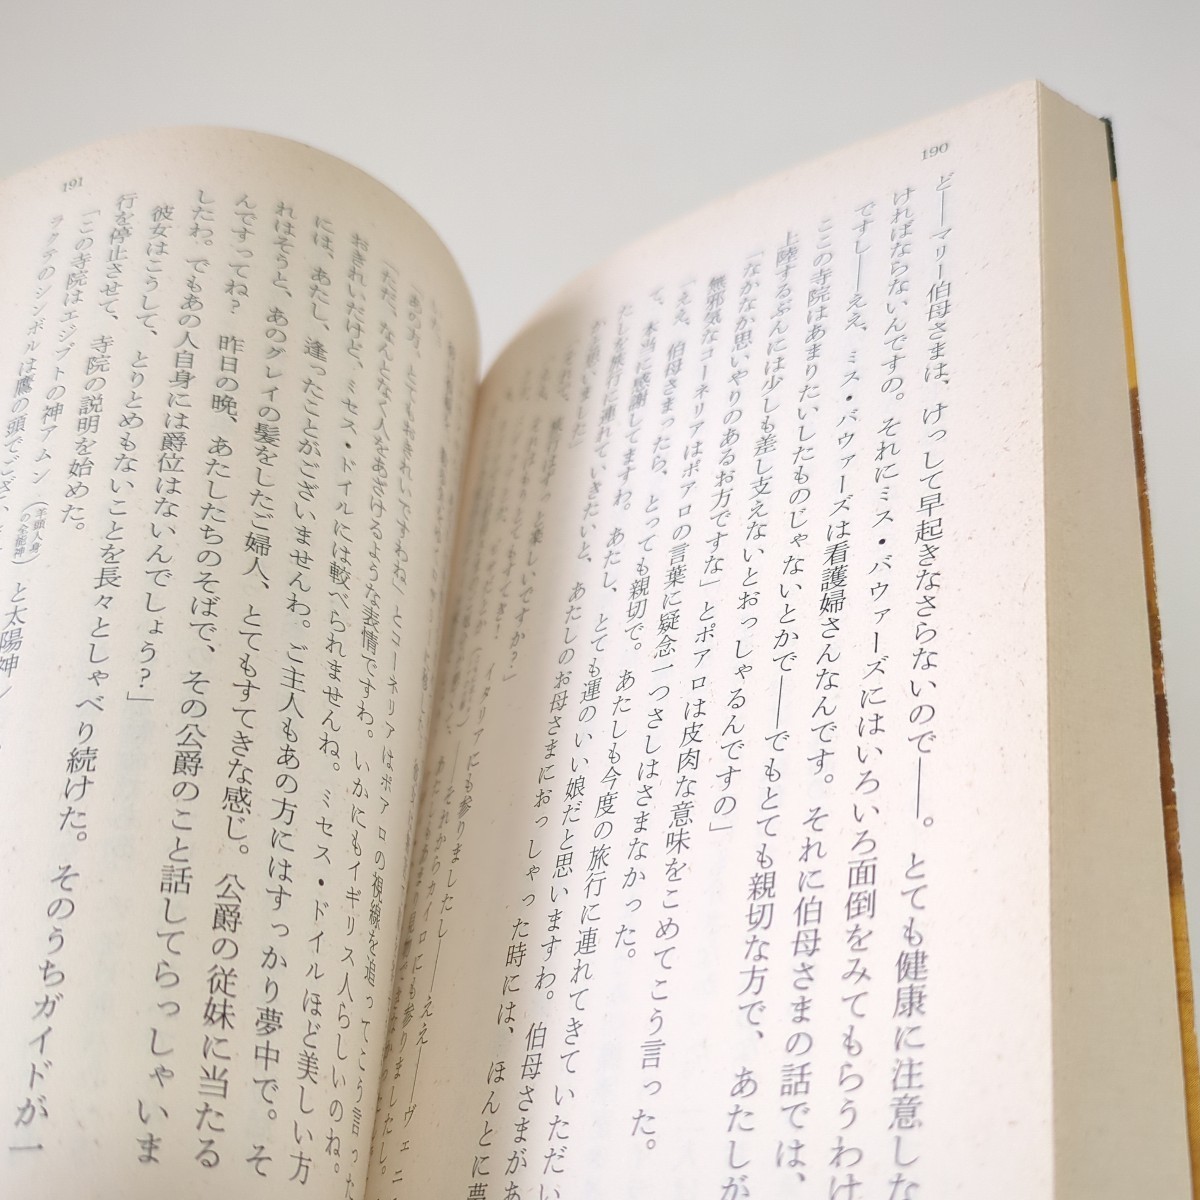 190
ど――マリー伯母さまは、けっして早起きなさらないので――。とても健康に注意した
ければならないんですの。それにミス・バウァーズにはいろいろ面倒をみてもらうわけ
ですし――ええ、ミス・バウァーズは看護婦さんなんです。それに伯母さまの話では、
ここの寺院はあまりたいしたものじゃないとかで――でもとても親切な方で、あたしが
上陸するぶんには少しも差し支えないとおっしゃるんですの」
「なかなか思いやりのあるお方ですな」とポアロは皮肉な意味をこめてこう言った。
無邪気なコーネリアはポアロの言葉に疑念一つさしはさまなかった。
「ええ、伯母さまったら、とっても親切で。あたしも今度の旅行に連れてきていただい
て、本当に感謝してますわ。あたし、とても運のいい娘だと思いますわ。伯母さまがあ
たしを旅行に連れていきたいと、あたしのお母さまにおっしゃった時には、ほんとに夢
かと思いました」
191
「あの方、とてもおきれいですわね」とコーネリアはポアロの視線を追ってこう言った
「ただ、なんとなく人をあざけるような表情ですわ。いかにもイギリス人らしいのね。
おきれいだけど、ミセス・ドイルには較べられませんね。ミセス・ドイルほど美しい方
には、あたし、逢ったことがございませんわ。ご主人もあの方にはすっかり夢中で。そ
れはそうと、あのグレイの髪をしたご婦人、とてもすてきな感じ。公爵の従妹に当たる
んですってね? 昨日の晩、あたしたちのそばで、その公爵のこと話してらっしゃいま
したわ。でもあの人自身には爵位はないんでしょう?」
彼女はこうして、とりとめもないことを長々としゃべり続けた。そのうちガイドが一
行を停止させて、寺院の説明を始めた。
「この寺院はエジプトの神アムン(羊頭人身の全能神)と太陽神
ラクテのシンボルは鷹の頭でござ